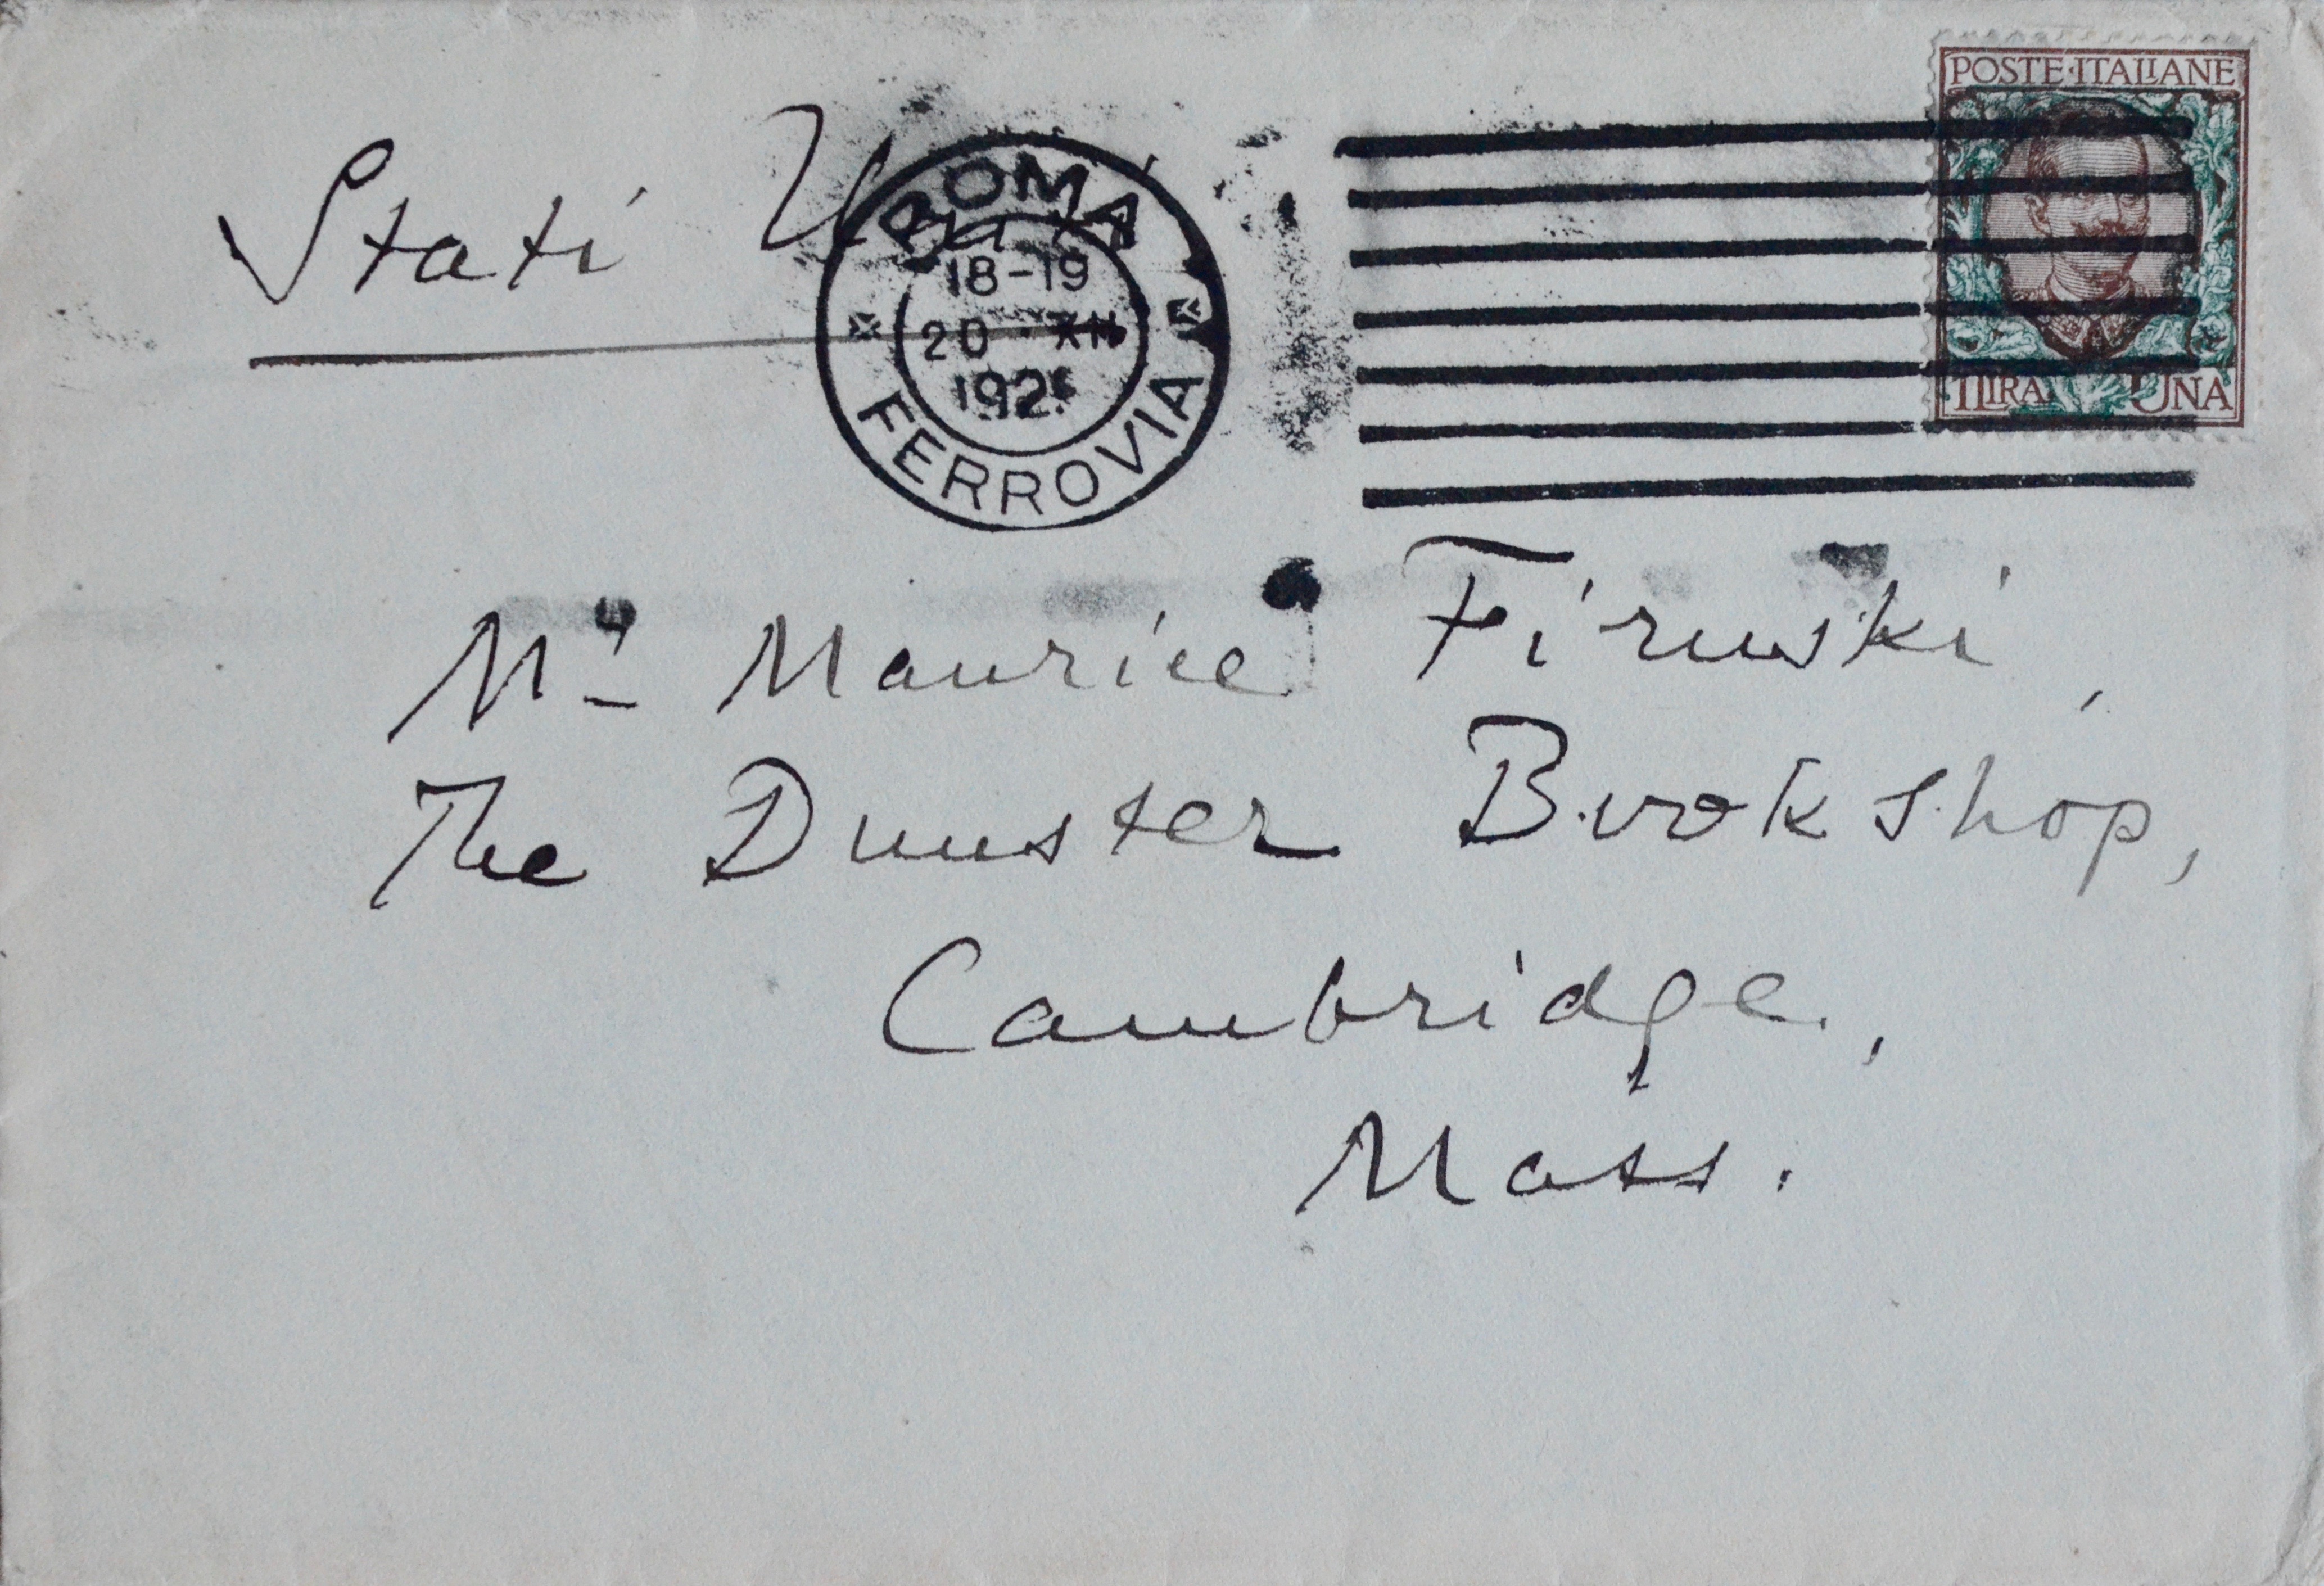 POSTE·ITALIANE
Stati
ROMA
18-19
20 XII
FERROVIA
LIRA UNA
Mr Maurice Firuski,
The Dunster Bookshop,
Cambridge,
Mass.